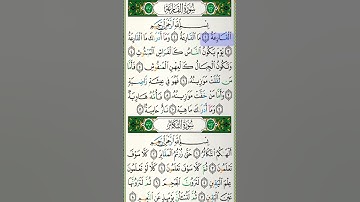 سُورَةُ القَارِعَةِ
بِسْمِ ٱللَّهِ ٱلرَّحْمَٰنِ ٱلرَّحِيمِ
ٱلْقَارِعَةُ ۝ مَا ٱلْقَارِعَةُ ۝ وَمَآ أَدْرَىٰكَ مَا ٱلْقَارِعَةُ
۝ يَوْمَ يَكُونُ ٱلنَّاسُ كَٱلْفَرَاشِ ٱلْمَبْثُوثِ ۝
وَتَكُونُ ٱلْجِبَالُ كَٱلْعِهْنِ ٱلْمَنفُوشِ ۝ فَأَمَّا
مَن ثَقُلَتْ مَوَٰزِينُهُۥ ۝ فَهُوَ فِى عِيشَةٍ رَّاضِيَةٍ
۝ وَأَمَّا مَنْ خَفَّتْ مَوَٰزِينُهُۥ ۝ فَأُمُّهُۥ هَاوِيَةٌ
۝ وَمَآ أَدْرَىٰكَ مَا هِيَهْ ۝ نَارٌ حَامِيَةٌۢ ۝
سُورَةُ التَّكَاثُرِ
بِسْمِ ٱللَّهِ ٱلرَّحْمَٰنِ ٱلرَّحِيمِ
أَلْهَىٰكُمُ ٱلتَّكَاثُرُ ۝ حَتَّىٰ زُرْتُمُ ٱلْمَقَابِرَ ۝ كَلَّا سَوْفَ
تَعْلَمُونَ ۝ ثُمَّ كَلَّا سَوْفَ تَعْلَمُونَ ۝ كَلَّا لَوْ تَعْلَمُونَ
عِلْمَ ٱلْيَقِينِ ۝ لَتَرَوُنَّ ٱلْجَحِيمَ ۝ ثُمَّ لَتَرَوُنَّهَا
عَيْنَ ٱلْيَقِينِ ۝ ثُمَّ لَتُسْـَٔلُنَّ يَوْمَئِذٍ عَنِ ٱلنَّعِيمِ ۝